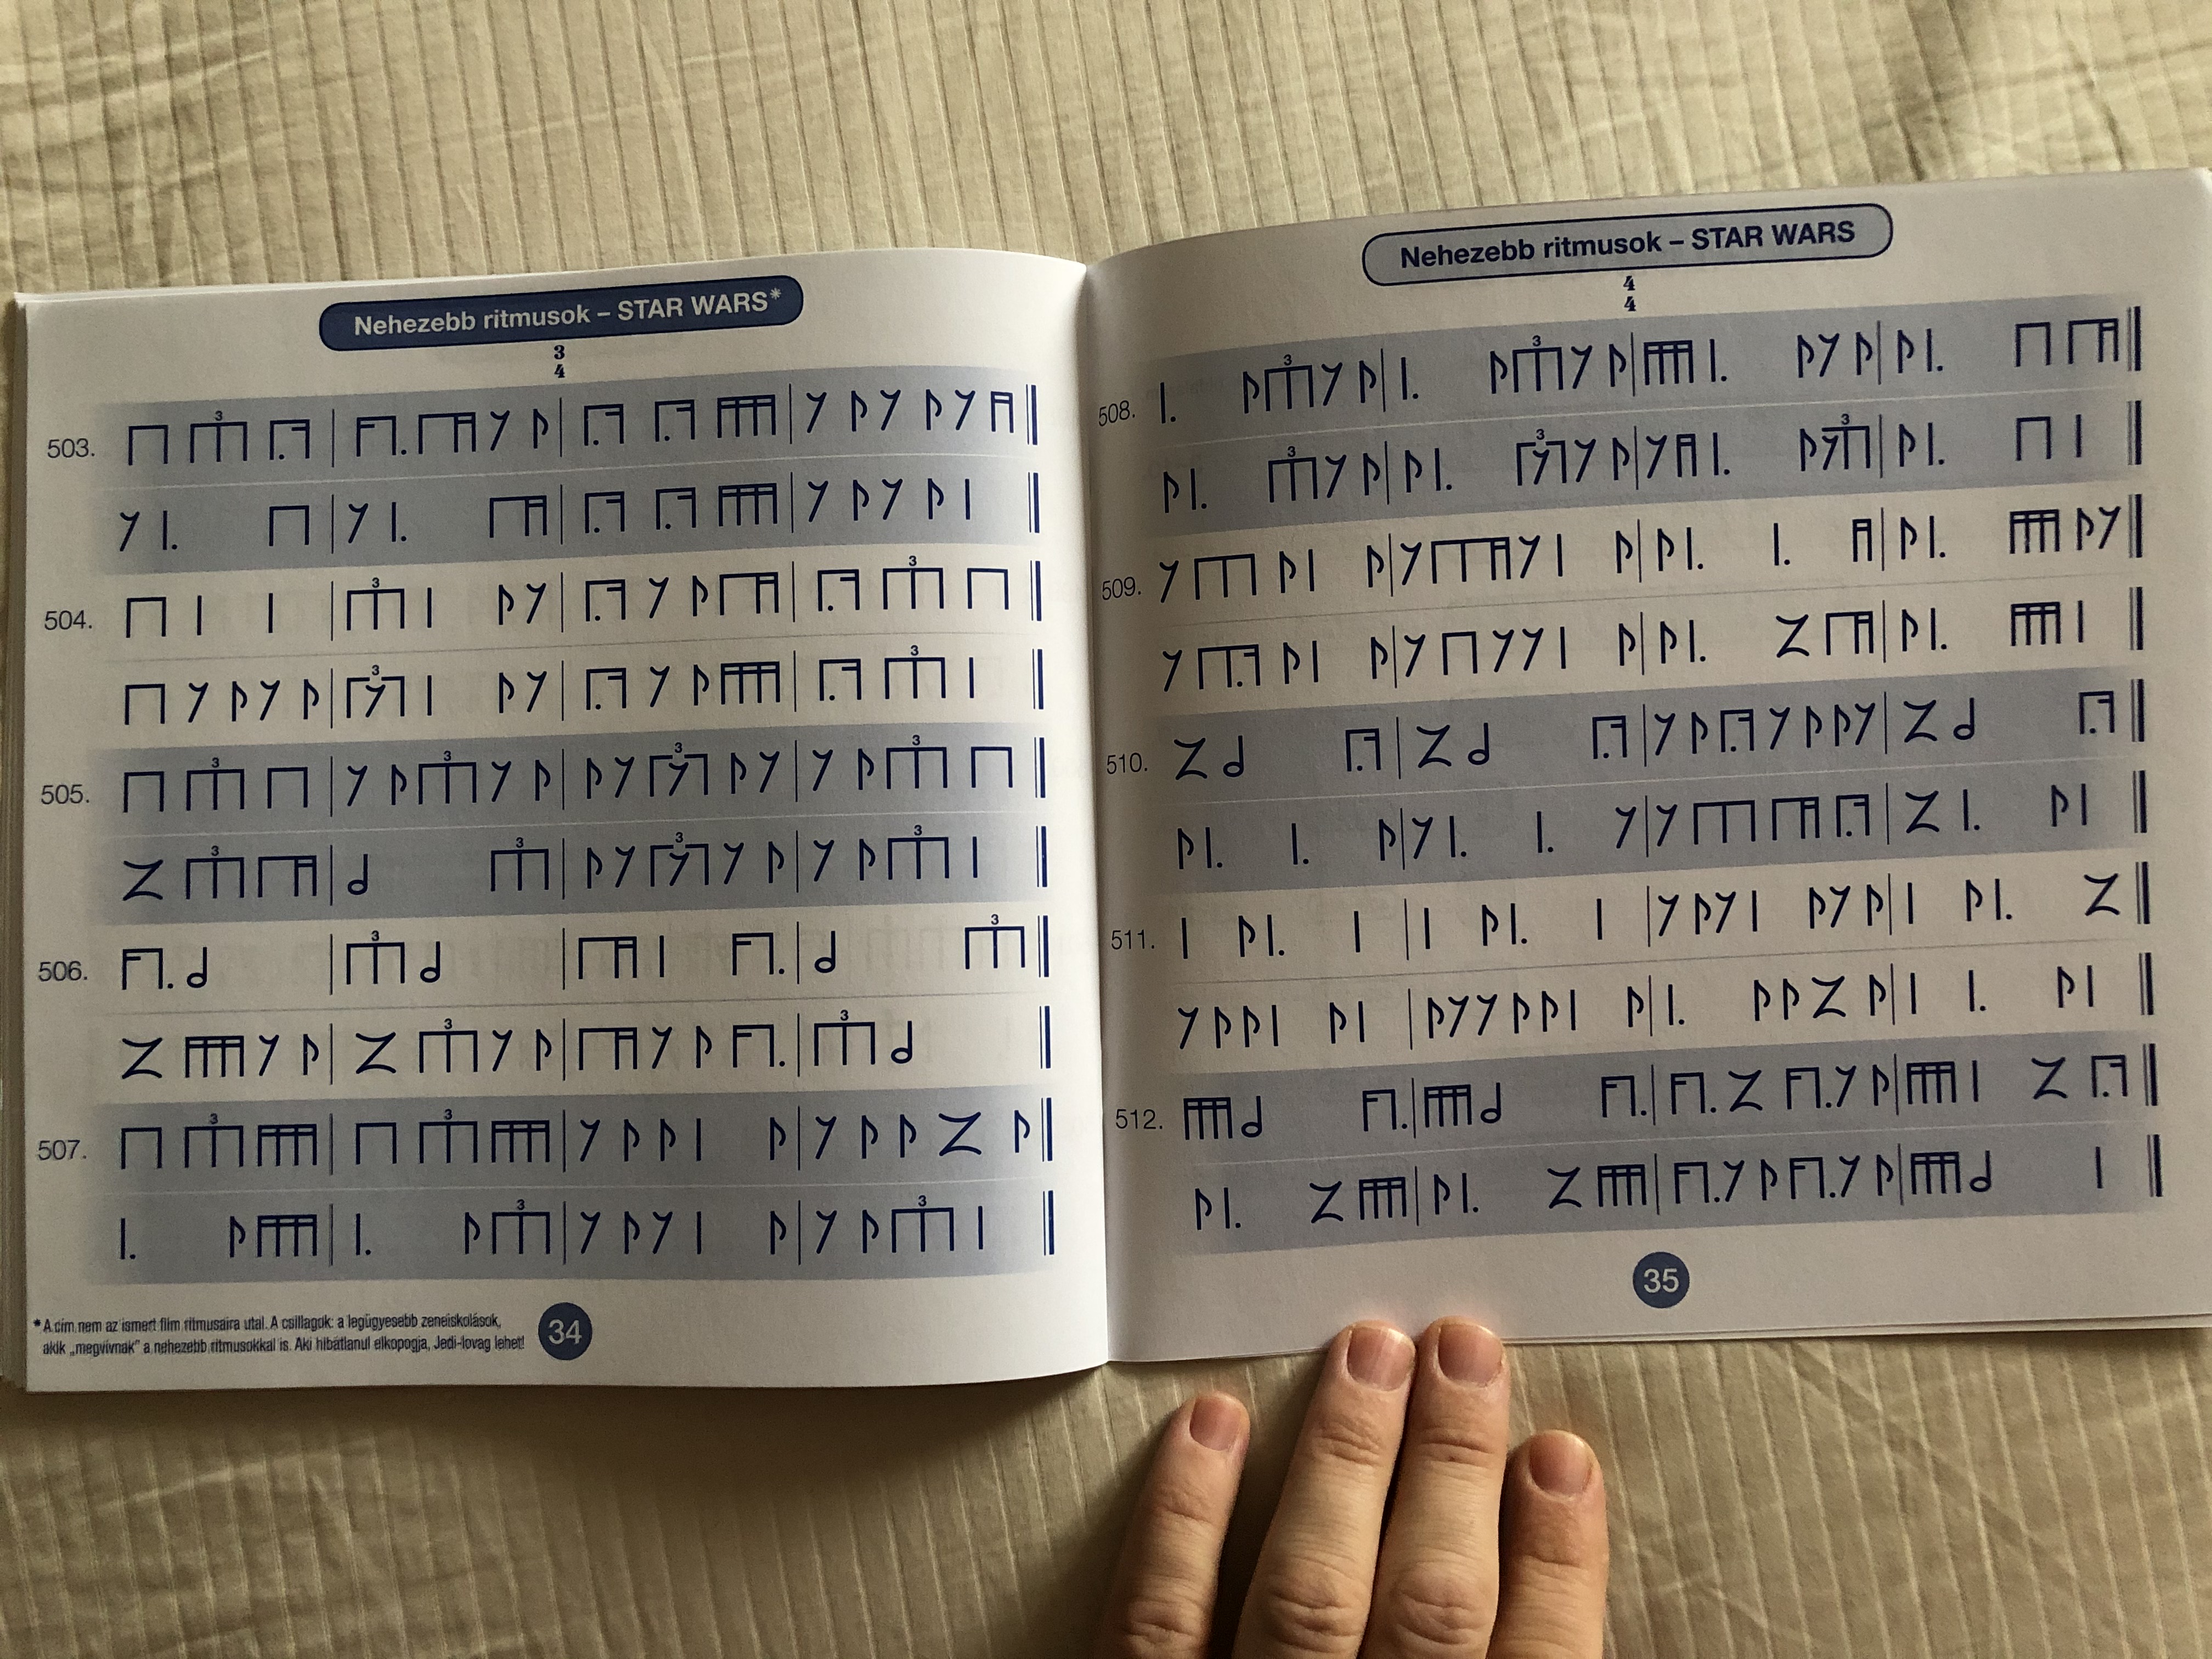 Nehezebb ritmusok – STAR WARS*
3
4
503.
3
504.
3
3
3
3
505.
3
3
3
3
3
3
3
3
506.
3
3
3
3
507.
3
3
3
3
* A cím nem az ismert film ritmusaira utal. A csillagok: a legügyesebb zeneiskolások,
akik „megvívnak” a nehezebb ritmusokkal is. Aki hibátlanul elkopogja, Jedi-lovag lehet!
34
Nehezebb ritmusok – STAR WARS
4
4
508.
3
3
3
3
3
509.
510.
511.
512.
35